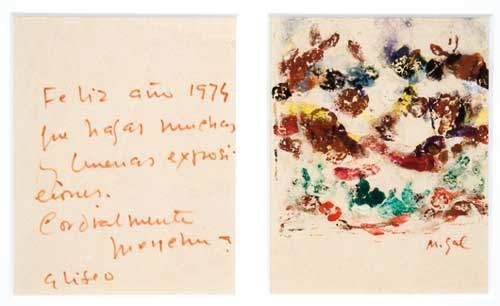 Feliz año 1974
que hagas muchas
y buenas exposi-
ciones.
Cordialmente
Menchu
M. Gal